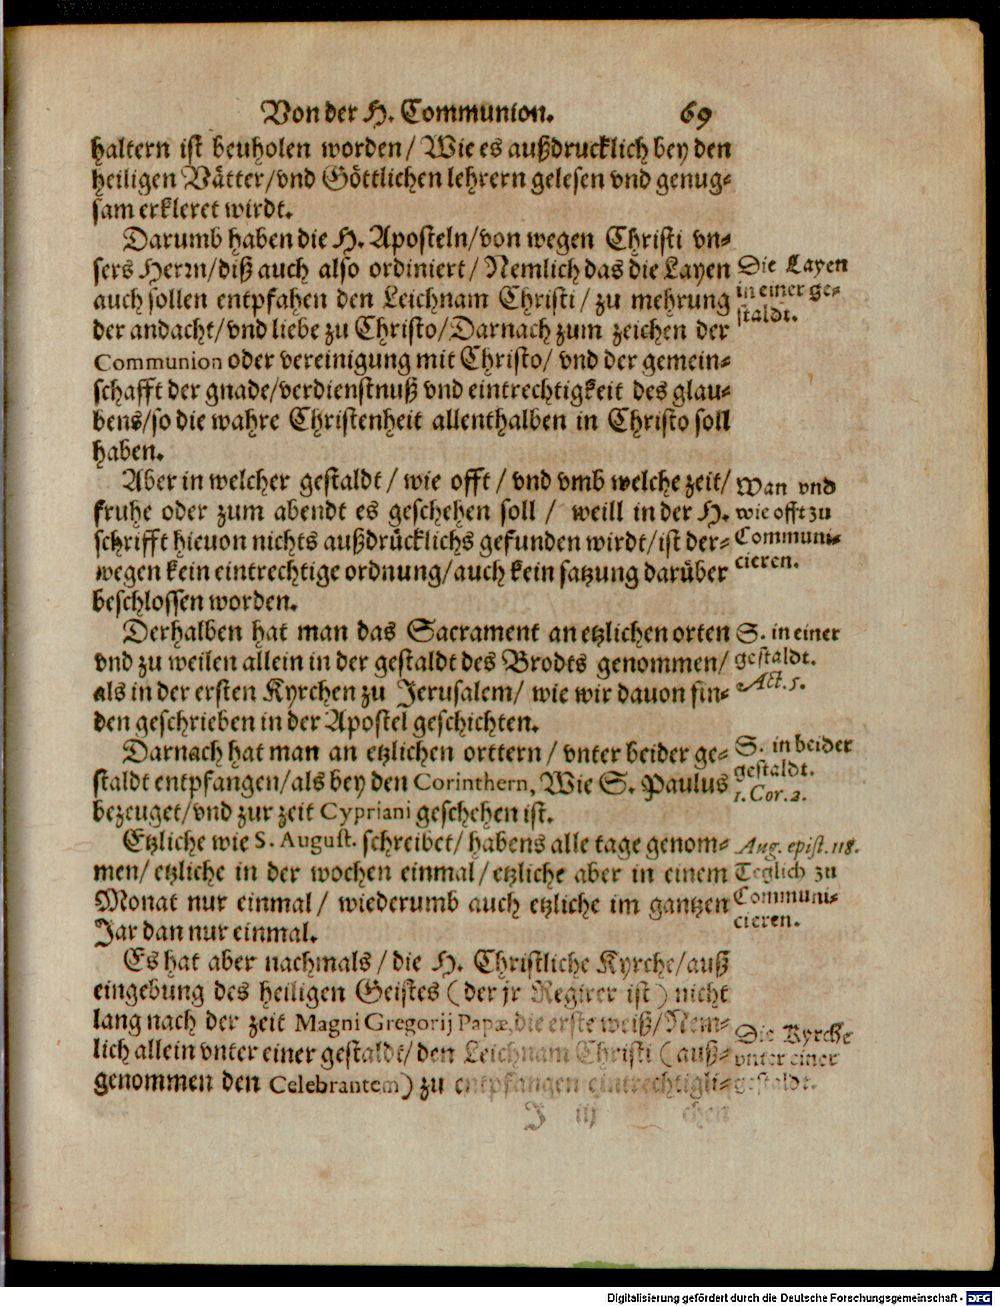 Von der H. Communion. 69
haltern ist beuholen worden/ Wie es außdrucklich bey den
heiligen Vätter/vnd Göttlichen lehrern gelesen vnd genug-
sam erkleret wirdt.
Darumb haben die H. Aposteln/von wegen Christi vn-
sers Herrn/diß auch also ordiniert/ Nemlich das die Layen
auch sollen entpfahen den Leichnam Christi/ zu mehrung
der andacht/vnd liebe zu Christo/Darnach zum zeichen der
Communion oder vereinigung mit Christo/ vnd der gemein-
schafft der gnade/verdienstnuß vnd eintrechtigkeit des glau-
bens/so die wahre Christenheit allenthalben in Christo soll
haben.
Die Layen
in einer ge-
staldt.
Aber in welcher gestaldt/ wie offt/ vnd vmb welche zeit/
fruhe oder zum abendt es geschehen soll/ weill in der H.
schrifft hieuon nichts außdrücklichs gefunden wirdt/ist der-
wegen kein eintrechtige ordnung/auch kein satzung darüber
beschlossen worden.
Wan vnd
wie offt zu
Communi-
cieren.
Derhalben hat man das Sacrament an etzlichen orten
vnd zu weilen allein in der gestaldt des Brodts genommen/
als in der ersten Kyrchen zu Jerusalem/ wie wir dauon fin-
den geschrieben in der Apostel geschichten.
S. in einer
gestaldt.
Act. 5.
Darnach hat man an etzlichen orttern/ vnter beider ge-
staldt entpfangen/als bey den Corinthern, Wie S. Paulus
bezeuget/vnd zur zeit Cypriani geschehen ist.
S. in beider
gestaldt.
1. Cor. 2.
Etzliche wie S. August. schreibet/ habens alle tage genom-
men/ etzliche in der wochen einmal/ etzliche aber in einem
Monat nur einmal/ wiederumb auch etzliche im gantzen
Jar dan nur einmal.
Aug. epist. 118.
Teglich zu
Communi-
cieren.
Es hat aber nachmals/ die H. Christliche Kyrche/auß
eingebung des heiligen Geistes (der jr Regirer ist) nicht
lang nach der zeit Magni Gregorij Papæ, die erste weiß/ Nem-
lich allein vnter einer gestaldt/ den Leichnam Christi (auß-
genommen den Celebrantem) zu entpfangen eintrechtigli-
Die Kyrche
vnter einer
gestaldt.
J iij chen
Digitalisierung gefördert durch die Deutsche Forschungsgemeinschaft - DFG